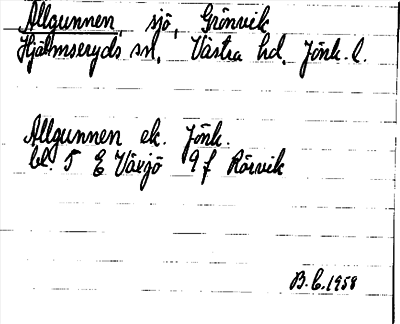 Allgunnen, sjö, Grönvik
Hjälmseryds sn, Västra hd, Jönk. l.
Allgunnen ek. Jönk.
bl. 5 E Växjö 9 f Rörvik
B. C. 1958